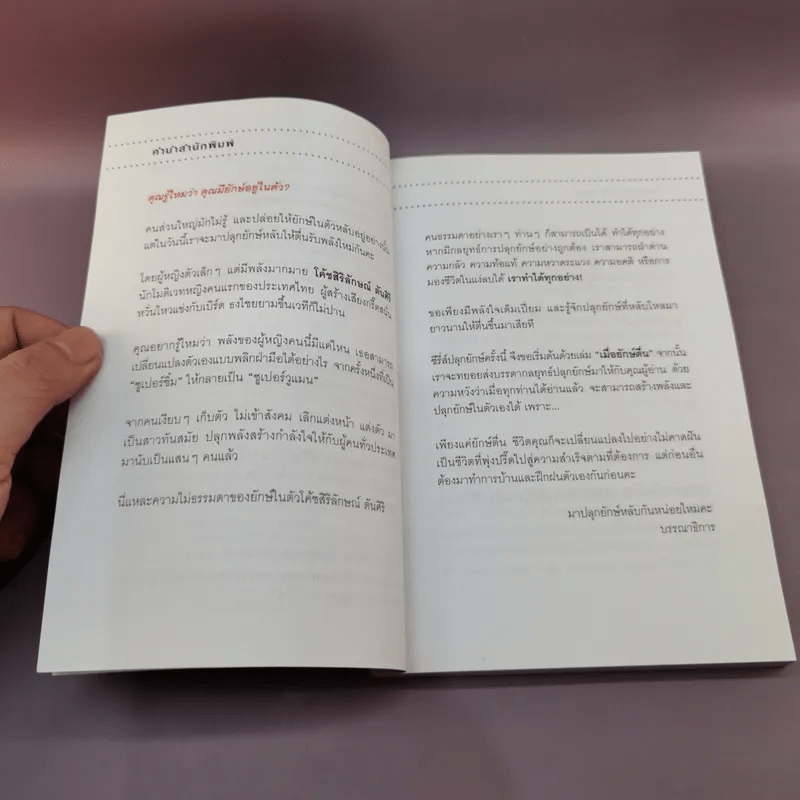 คำนำสำนักพิมพ์
คุณรู้ไหมว่า คุณมียักษ์อยู่ในตัว?
คนส่วนใหญ่มักไม่รู้ และปล่อยให้ยักษ์ในตัวหลับอยู่อย่างนั้น
แต่ในวันนี้เราจะมาปลุกยักษ์หลับให้ตื่นรับพลังใหม่กันคะ
โดยผู้หญิงตัวเล็กๆ แต่มีพลังมากมาย โค้ชสิริลักษณ์ ตันศิริ
นักโมติเวทหญิงคนแรกของประเทศไทย ผู้สร้างเสียงกรี๊ดสนั่น
หวั่นไหวแข่งกับเบิร์ด ธงไชยยามขึ้นเวทีก็ไม่ปาน
คุณอยากรู้ไหมว่า พลังของผู้หญิงคนนี้มีแค่ไหน เธอสามารถ
เปลี่ยนแปลงตัวเองแบบพลิกฝ่ามือได้อย่างไร จากครั้งหนึ่งที่เป็น
"ซูเปอร์ซึ้ม" ให้กลายเป็น "ซูเปอร์วูแมน"
จากคนเงียบๆ เก็บตัว ไม่เข้าสังคม เลิกแต่งหน้า แต่งตัว มา
เป็นสาวทันสมัย ปลุกพลังสร้างกำลังใจให้กับผู้คนทั่วประเทศ
มานับเป็นแสนๆ คนแล้ว
นี่แหละความไม่ธรรมดาของยักษ์ในตัวโค้ชสิริลักษณ์ ตันศิริ
คนธรรมดาอย่างเราๆ ท่านๆ ก็สามารถเป็นได้ ทำได้ทุกอย่าง
หากมีกลยุทธ์การปลุกยักษ์อย่างถูกต้อง เราสามารถฝ่าด่าน
ความกลัว ความท้อแท้ ความหวาดระแวง ความอคติ หรือการ
มองชีวิตในแง่ลบได้ เราทำได้ทุกอย่าง!
ขอเพียงมีพลังใจเต็มเปี่ยม และรู้จักปลุกยักษ์ที่หลับใหลมา
ยาวนานให้ตื่นขึ้นมาเสียที
ซีรี่ส์ปลุกยักษ์ครั้งนี้ จึงขอเริ่มต้นด้วยเล่ม "เมื่อยักษ์ตื่น" จากนั้น
เราจะทยอยส่งบรรดากลยุทธ์ปลุกยักษ์มาให้กับคุณผู้อ่าน ด้วย
ความหวังว่าเมื่อทุกท่านได้อ่านแล้ว จะสามารถสร้างพลังและ
ปลุกยักษ์ในตัวเองได้ เพราะ...
เพียงแค่ยักษ์ตื่น ชีวิตคุณก็จะเปลี่ยนแปลงไปอย่างไม่คาดฝัน
เป็นชีวิตที่พุ่งปรี๊ดไปสู่ความสำเร็จตามที่ต้องการ แต่ก่อนอื่น
ต้องมาทำการบ้านและฝึกฝนตัวเองกันก่อนคะ
มาปลุกยักษ์หลับกันหน่อยไหมคะ
บรรณาธิการ